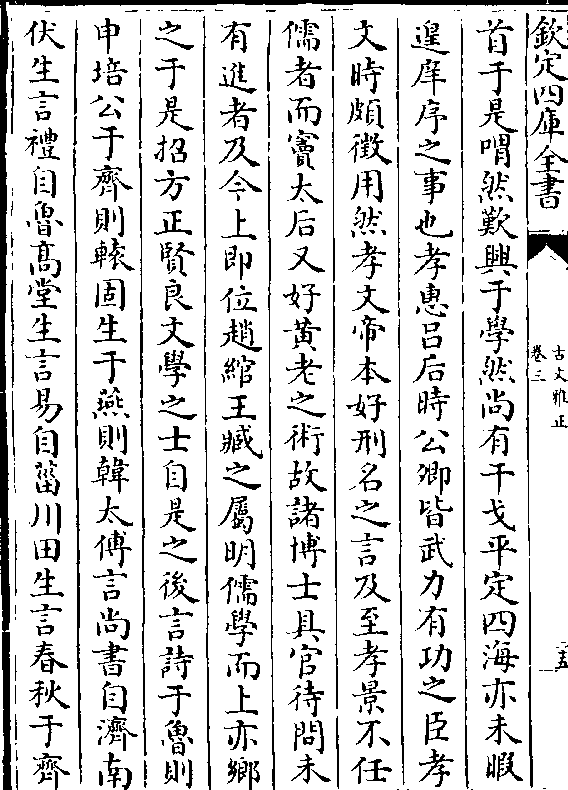 欽定四庫全書
古文雅正
卷三
首于是喟然歎興于學然尚有干戈平定四海亦未暇
遑庠序之事也孝惠吕后時公卿皆武力有功之臣孝
文時頗徵用然孝文帝本好刑名之言及至孝景不任
儒者而竇太后又好黄老之術故諸博士具官待問未
有進者及今上即位趙綰王臧之屬明儒學而上亦鄉
之于是招方正賢良文學之士自是之後言詩于魯則
申培公于齊則轅固生于燕則韓太傅言尚書自濟南
伏生言禮自魯髙堂生言易自菑川田生言春秋于齊